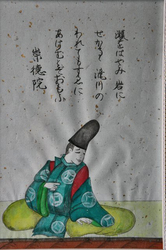 瀬をはやみ岩に
せかるゝ滝川の
われてもすゑに
あはむとぞおもふ
崇徳院